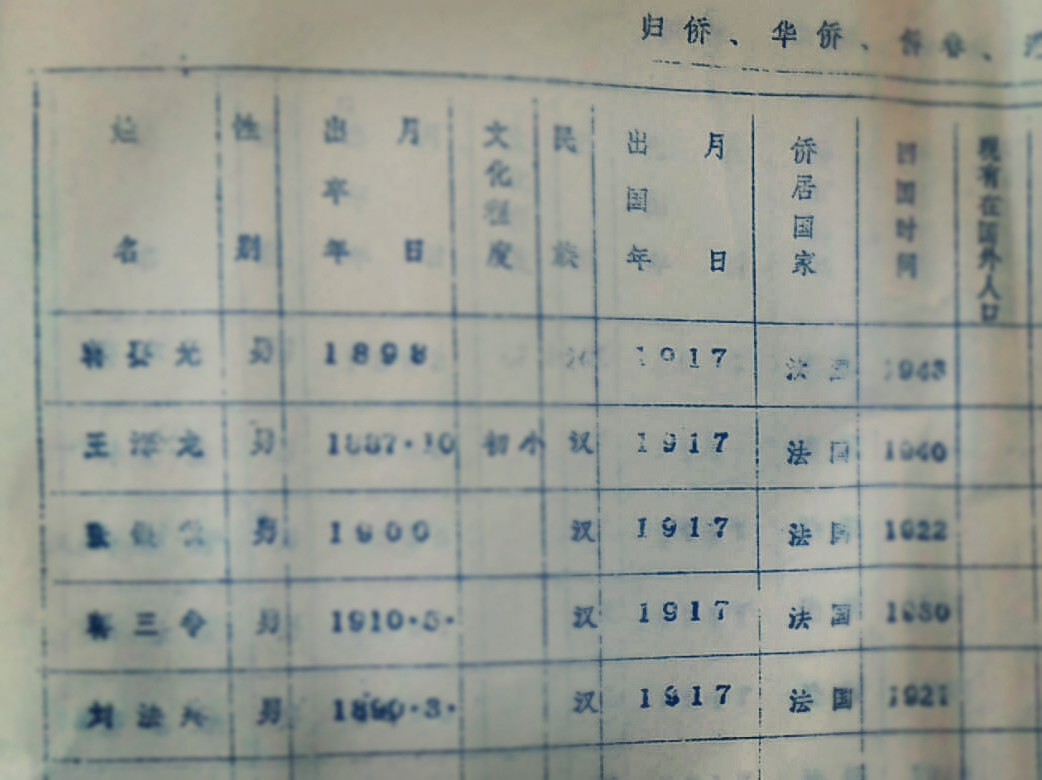 归侨、华侨、侨眷、
姓名 性别 出生年月日 文化程度 民族 出国年月日 侨居国家 回国时间 现有在国外人口
男 1898 1917 法国 1943
王泽龙 男 1887·10 初小 汉 1917 法国 1940
男 1900 汉 1917 法国 1922
三令 男 1910·5· 汉 1917 法国 1930
刘法 男 1890·3· 汉 1917 法国 1921